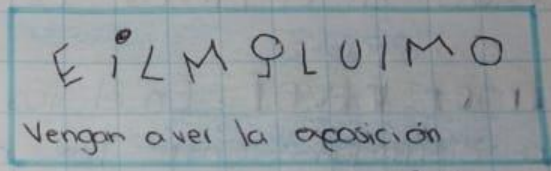 EiLMQLUIMO
Vengan a ver la exposición